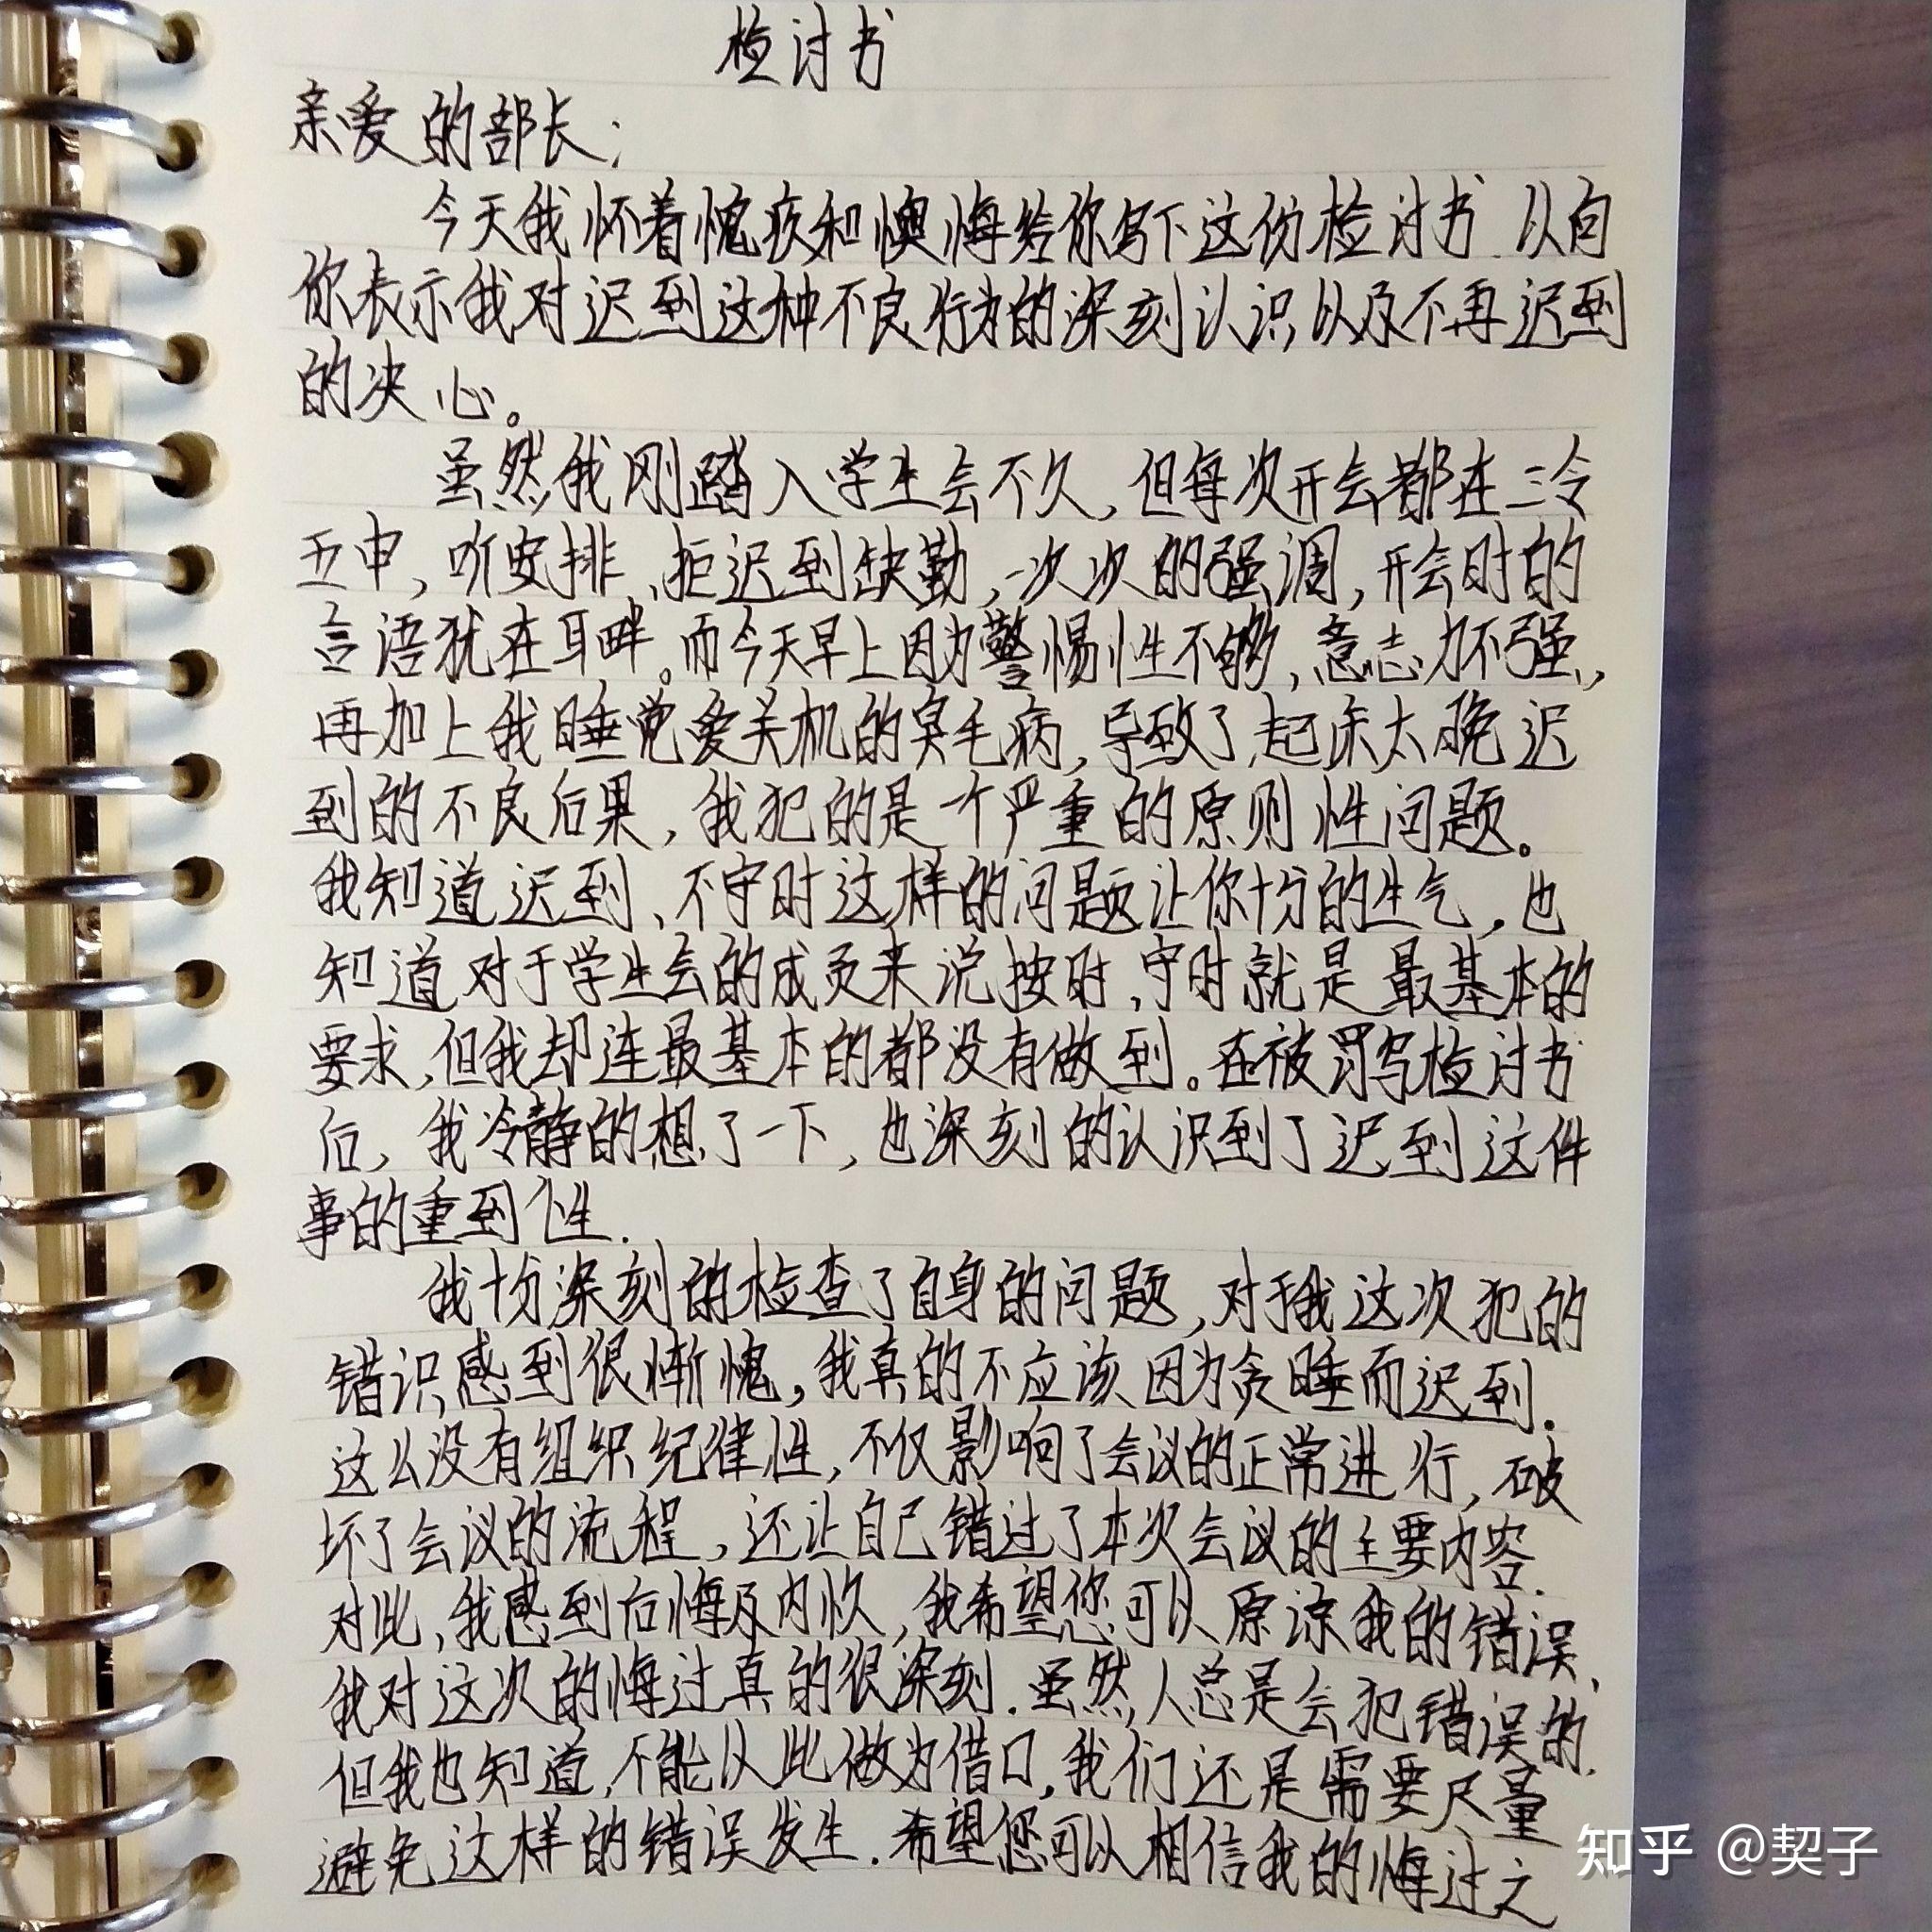 检讨书
亲爱的部长：
今天我怀着愧疚和懊悔给你写下这份检讨书.以向
你表示我对迟到这种不良行为的深刻认识以及不再迟到
的决心。
虽然我刚踏入学生会不久,但每次开会都在三令
五申,听安排、拒迟到缺勤,一次次的强调,开会时的
言语犹在耳畔。而今天早上因为警惕性不够,意志力不强,
再加上我睡觉爱关机的臭毛病,导致了起床太晚迟
到的不良后果,我犯的是一个严重的原则性问题。
我知道迟到、不守时这样的问题让你十分的生气,也
知道对于学生会的成员来说按时,守时就是最基本的
要求,但我却连最基本的都没有做到。在被罚写检讨书
后,我冷静的想了一下,也深刻的认识到了迟到这件
事的重到性.
我十分深刻的检查了自身的问题,对于我这次犯的
错识感到很惭愧,我真的不应该因为贪睡而迟到.
这么没有组织纪律性,不仅影响了会议的正常进行,破
坏了会议的流程,还让自己错过了本次会议的主要内容.
对此,我感到后悔及内疚,我希望您可以原谅我的错误,
我对这次的悔过真的很深刻.虽然人总是会犯错误的.
但我也知道,不能以此做为借口,我们还是需要尽量
避免这样的错误发生.希望您可以相信我的悔过之
知乎 @契子